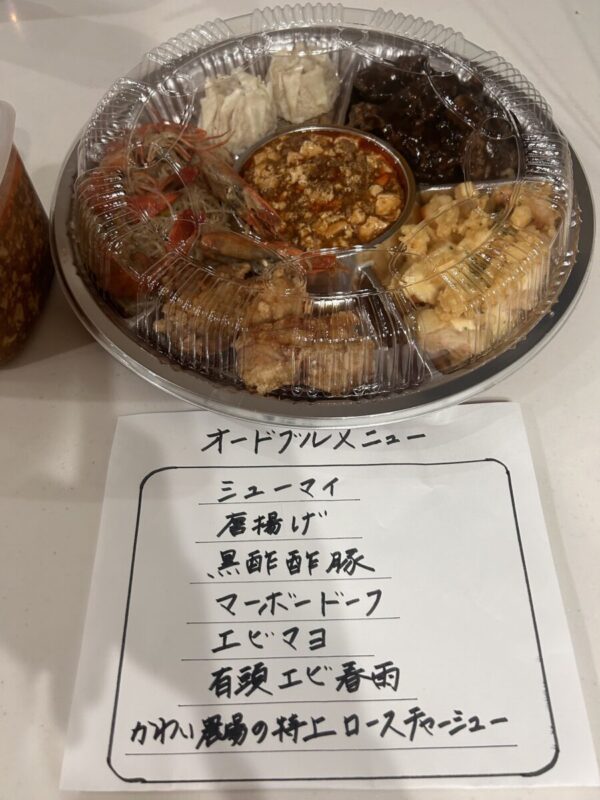 オードブルメニュー
シューマイ
唐揚げ
黒酢酢豚
マーボードーフ
エビマヨ
有頭エビ春雨
かわい農場の特上ロースチャーシュー